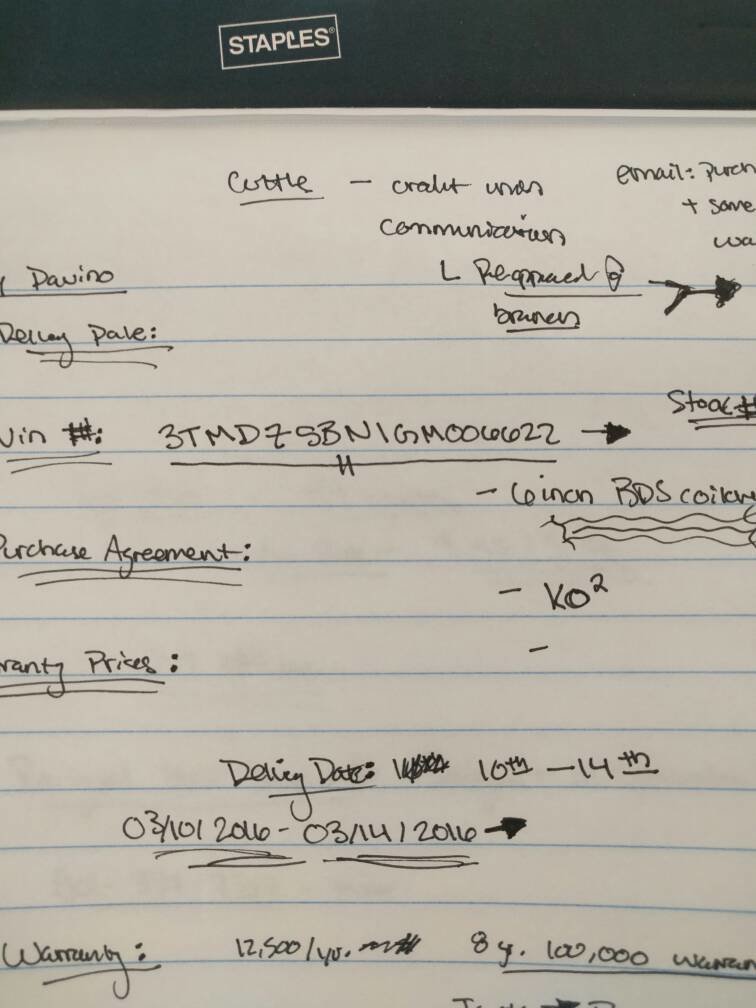 STAPLES
Cuttle - credit union
email: Purch
communications
+ same
wa
y Davino
L Required
branches
Delivey Date:
Stock #
Vin #: 3TMDZ5BN1GM006622
- 6 inch BDS coilov
Purchase Agreement:
- KO²
-
rranty Prices:
Delivey Date: 10th - 14th
03/10/2016 - 03/14/2016
Warranty: 12,500/yr. 8 y. 100,000 warran